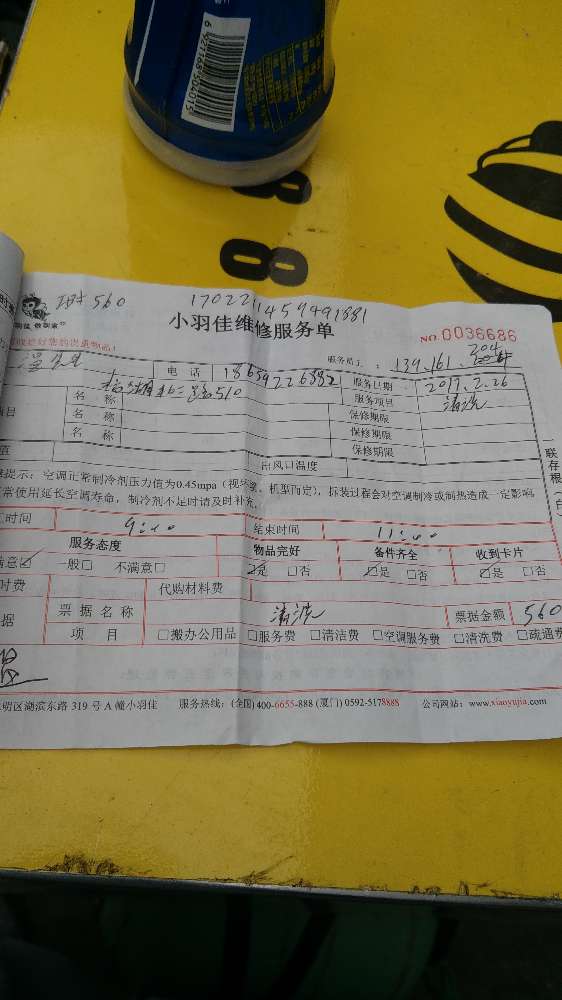 6 921168 504015
560
1702211459491881
小羽佳维修服务单
NO.0036686
服务员工：139.161.204
电 话 18659226882 服务日期 2017.2.26
名 称 510 服务项目 清洗
项目 名 称 保修期限
名 称 保修期限
保修期限
值 出风口温度
提示：空调正常制冷剂压力值为0.45mpa（视环境、机型而定），拆装过程会对空调制冷或制热造成一定影响
常使用延长空调寿命，制冷剂不足时请及时补充。
时间 9:00 结束时间 11:00
服务态度 物品完好 备件齐全 收到卡片
满意☑ 一般□ 不满意□ ☑是 □否 ☑是 □否 ☑是 □否
时费 代购材料费
据 票 据 名 称 清洗 票据金额 560
项 目 □搬办公用品 □服务费 □清洁费 □空调服务费 □清洗费 □疏通费
明区湖滨东路 319 号 A 幢小羽佳 服务热线：(全国)400-6655-888 (厦门) 0592-5178888 公司网站：www.xiaoyujia.com
联
存
根